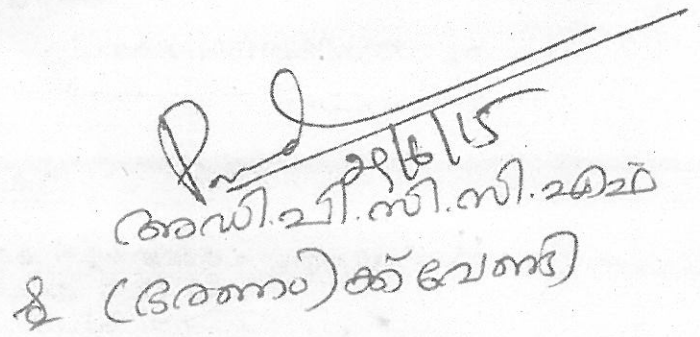 29/6/15
അഡി.പി.സി.സി.എഫ്
(ഭരണം)ക്ക് വേണ്ടി